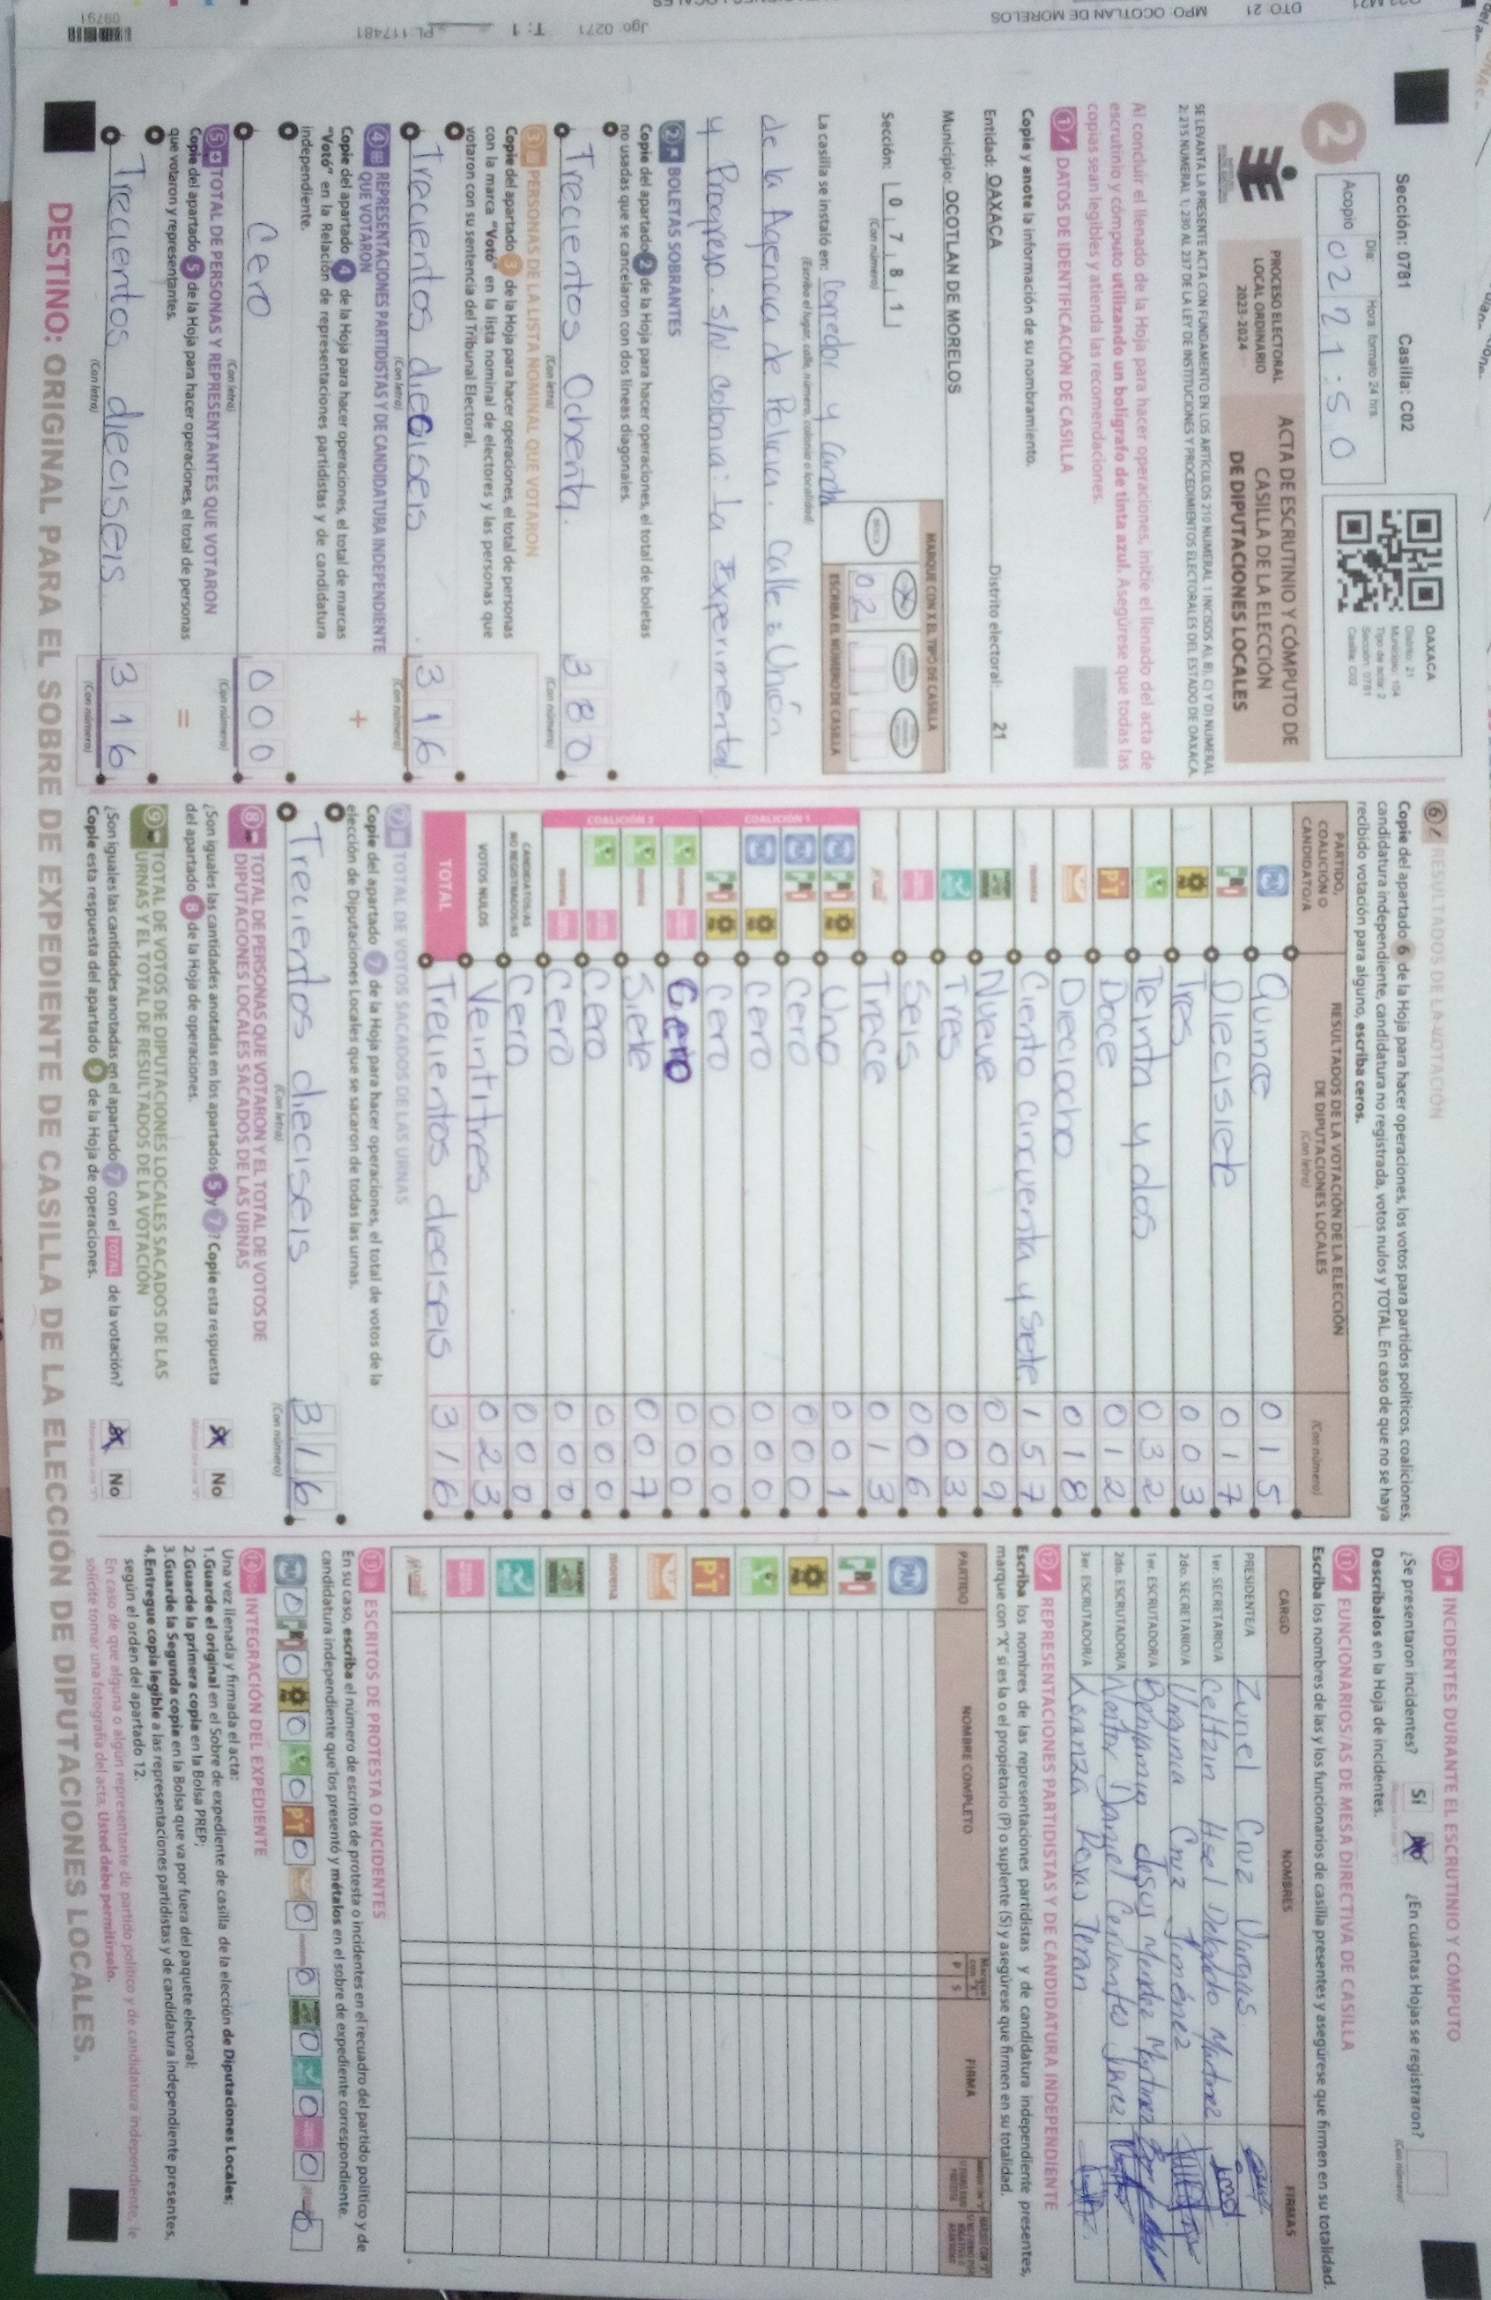 Sección: 0781 Casilla: C02
Día: Hora: formato 24 hrs.
Acopio 02 21:50
OAXACA
Distrito: 21
Municipio: 104
Tipo de acta: 2
Sección: 0781
Casilla: C02
2
PROCESO ELECTORAL
LOCAL ORDINARIO
2023-2024
ACTA DE ESCRUTINIO Y CÓMPUTO DE
CASILLA DE LA ELECCIÓN
DE DIPUTACIONES LOCALES
SE LEVANTA LA PRESENTE ACTA CON FUNDAMENTO EN LOS ARTÍCULOS 210 NUMERAL 1 INCISOS A), B), C) Y D) NUMERAL
2; 215 NUMERAL 1; 230 AL 237 DE LA LEY DE INSTITUCIONES Y PROCEDIMIENTOS ELECTORALES DEL ESTADO DE OAXACA.
Al concluir el llenado de la Hoja para hacer operaciones, inicie el llenado del acta de
escrutinio y cómputo utilizando un bolígrafo de tinta azul. Asegúrese que todas las
copias sean legibles y atienda las recomendaciones.
1 DATOS DE IDENTIFICACIÓN DE CASILLA
Copie y anote la información de su nombramiento.
Entidad: OAXACA Distrito electoral: 21
Municipio: OCOTLAN DE MORELOS
Sección: 0781
(Con número)
MARQUE CON X EL TIPO DE CASILLA
ESCRIBA EL NÚMERO DE CASILLA
02
La casilla se instaló en: Corredor y Cancha
(Escriba el lugar, calle, número, colonia o localidad)
de la Agencia de Policia. calle: Unión
y Progreso. S/N colonia: la Experimental.
2 BOLETAS SOBRANTES
Copie del apartado 2 de la Hoja para hacer operaciones, el total de boletas
no usadas que se cancelaron con dos líneas diagonales.
Trecientos Ochenta. 380
(Con letra) (Con número)
3 PERSONAS DE LA LISTA NOMINAL QUE VOTARON
Copie del apartado 3 de la Hoja para hacer operaciones, el total de personas
con la marca "Votó" en la lista nominal de electores y las personas que
votaron con su sentencia del Tribunal Electoral.
Trecientos dieciseis 316
(Con letra) (Con número)
4 REPRESENTACIONES PARTIDISTAS Y DE CANDIDATURA INDEPENDIENTE
QUE VOTARON
Copie del apartado 4 de la Hoja para hacer operaciones, el total de marcas
"Votó" en la Relación de representaciones partidistas y de candidatura
independiente.
+
Cero 000
(Con letra) (Con número)
5 TOTAL DE PERSONAS Y REPRESENTANTES QUE VOTARON
Copie del apartado 5 de la Hoja para hacer operaciones, el total de personas
que votaron y representantes.
=
Trecientos dieciseis 316
(Con letra) (Con número)
6 RESULTADOS DE LA VOTACIÓN
Copie del apartado 6 de la Hoja para hacer operaciones, los votos para partidos políticos, coaliciones,
candidatura independiente, candidatura no registrada, votos nulos y TOTAL. En caso de que no se haya
recibido votación para alguno, escriba ceros.
PARTIDO, COALICIÓN O CANDIDATO/A
RESULTADOS DE LA VOTACIÓN DE LA ELECCIÓN
DE DIPUTACIONES LOCALES
(Con letra) (Con número)
PAN Quince 015
PRI Diecisiete 017
Tres 003
Teinta y dos 032
PT Doce 012
Dieciocho 018
morena Ciento cincuenta y Sete 157
Nueve 009
Tres 003
Seis 006
Trece 013
COALICIÓN 1
Uno 001
Cero 000
Cero 000
Cero 000
COALICIÓN 2
Cero 000
Siete 007
Cero 000
Cero 000
CANDIDATOS/AS NO REGISTRADOS/AS Cero 000
VOTOS NULOS Veintitres 023
TOTAL Trecientos dieciseis 316
7 TOTAL DE VOTOS SACADOS DE LAS URNAS
Copie del apartado 7 de la Hoja para hacer operaciones, el total de votos de la
elección de Diputaciones Locales que se sacaron de todas las urnas.
Trecientos dieciseis 316
(Con letra) (Con número)
8 TOTAL DE PERSONAS QUE VOTARON Y EL TOTAL DE VOTOS DE
DIPUTACIONES LOCALES SACADOS DE LAS URNAS
¿Son iguales las cantidades anotadas en los apartados 5 y 7? Copie esta respuesta
del apartado 8 de la Hoja de operaciones.
Sí No
9 TOTAL DE VOTOS DE DIPUTACIONES LOCALES SACADOS DE LAS
URNAS Y EL TOTAL DE RESULTADOS DE LA VOTACIÓN
¿Son iguales las cantidades anotadas en el apartado 7 con el TOTAL de la votación?
Copie esta respuesta del apartado 9 de la Hoja de operaciones.
Sí No
10 INCIDENTES DURANTE EL ESCRUTINIO Y CÓMPUTO
¿Se presentaron incidentes? Sí No ¿En cuántas Hojas se registraron?
(Con número)
Descríbalos en la Hoja de incidentes.
11 FUNCIONARIOS/AS DE MESA DIRECTIVA DE CASILLA
Escriba los nombres de las y los funcionarios de casilla presentes y asegúrese que firmen en su totalidad.
CARGO NOMBRES FIRMAS
PRESIDENTE/A Zuriel Cruz Vargas
1er. SECRETARIO/A Celtzin Itsel Delgado Martinez
2do. SECRETARIO/A Virginia Cruz Jiménez
1er. ESCRUTADOR/A Benjamin Jesus Mendez Martinez
2do. ESCRUTADOR/A Nestor Daniel Cervantes
3er. ESCRUTADOR/A Rojas Teran
12 REPRESENTACIONES PARTIDISTAS Y DE CANDIDATURA INDEPENDIENTE
Escriba los nombres de las representaciones partidistas y de candidatura independiente presentes,
marque con "X" si es la o el propietario (P) o suplente (S) y asegúrese que firmen en su totalidad.
PARTIDO NOMBRE COMPLETO P S FIRMA
PAN
PRI
PT
morena
13 ESCRITOS DE PROTESTA O INCIDENTES
En su caso, escriba el número de escritos de protesta o incidentes en el recuadro del partido político y de
candidatura independiente que los presentó y métalos en el sobre de expediente correspondiente.
PAN 0 PRI 0 0 0 PT 0 0 0 0 0 0 0
14 INTEGRACIÓN DEL EXPEDIENTE
Una vez llenada y firmada el acta:
1.Guarde el original en el Sobre de expediente de casilla de la elección de Diputaciones Locales;
2.Guarde la primera copia en la Bolsa PREP;
3.Guarde la Segunda copia en la Bolsa que va por fuera del paquete electoral;
4.Entregue copia legible a las representaciones partidistas y de candidatura independiente presentes,
según el orden del apartado 12.
En caso de que alguna o algún representante de partido político y de candidatura independiente, le
solicite tomar una fotografía del acta, Usted debe permitírselo.
DESTINO: ORIGINAL PARA EL SOBRE DE EXPEDIENTE DE CASILLA DE LA ELECCIÓN DE DIPUTACIONES LOCALES.
DTO 21 MPO: OCOTLAN DE MORELOS
Jgo: 0271 T: 1 PL: 117481
09791